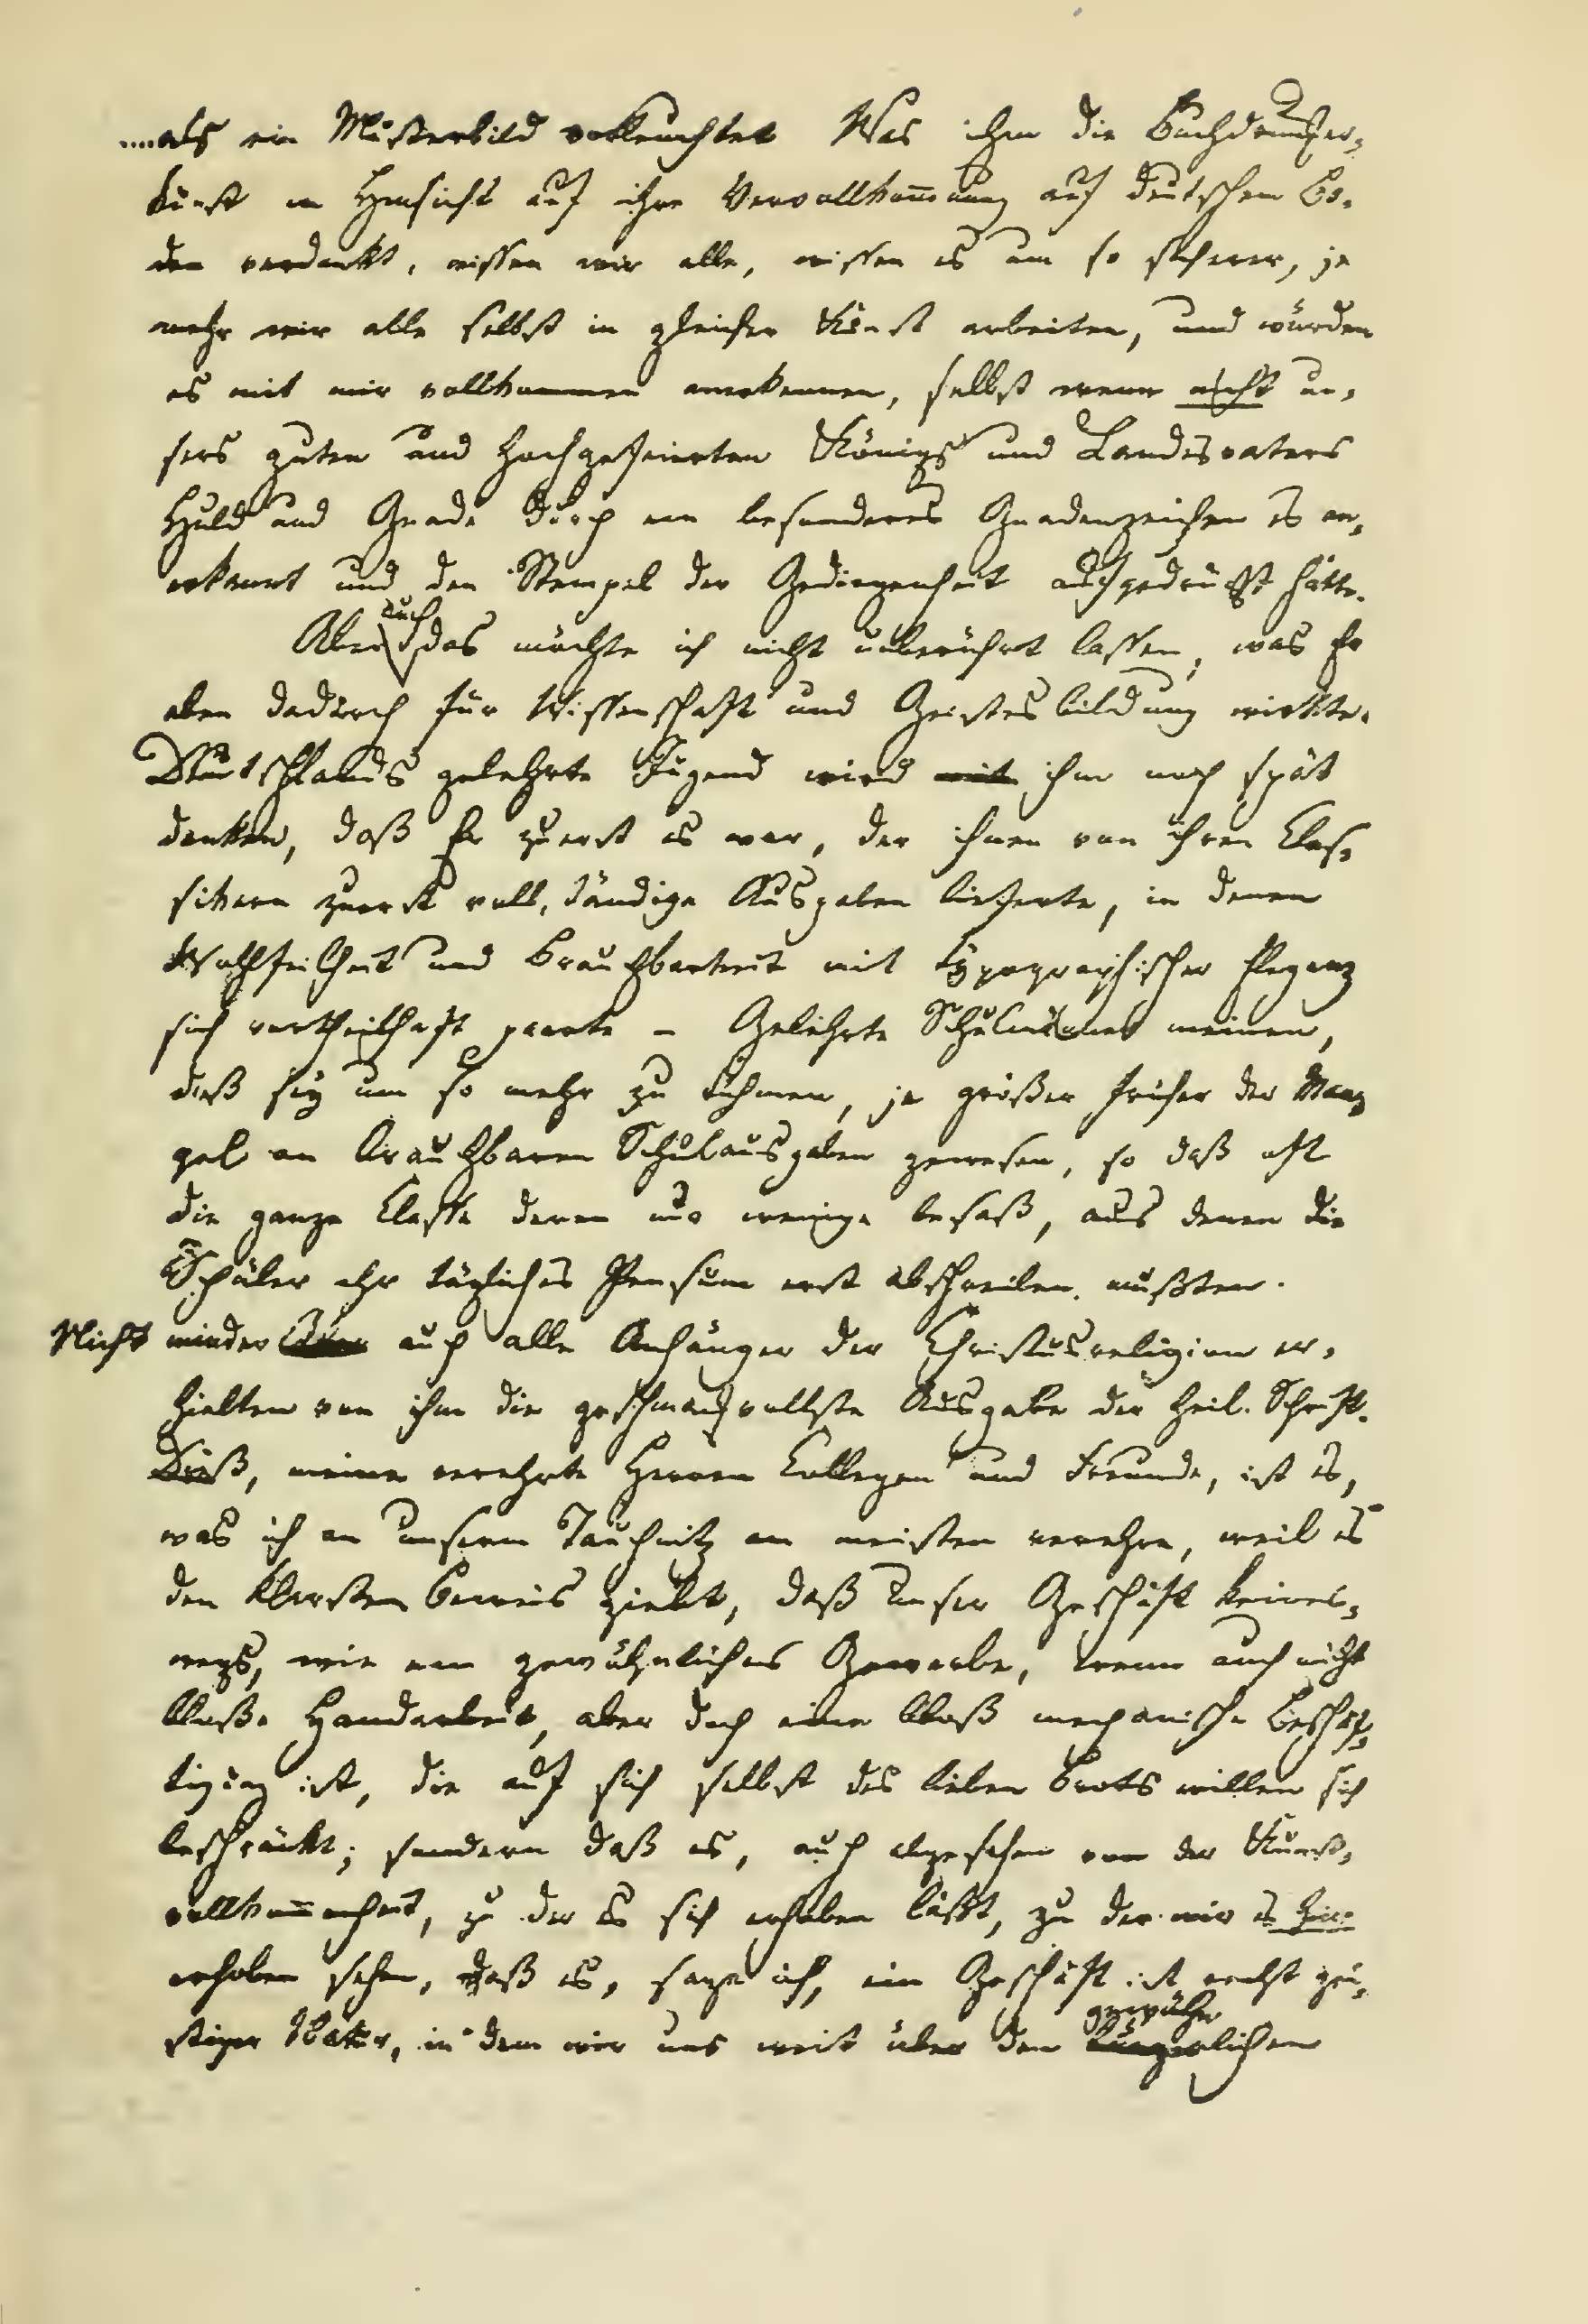 ....als ein Musterbild vorleuchtet Was ihm die Buchdrucker-
kunst in Hinsicht auf ihre Vervollkom̅nung auf deutschem Bo-
den verdankt, wissen wir alle, wissen es um so sicherer, je
mehr wir alle selbst in gleicher Kunst arbeiten, und würden
es mit mir vollkommen anerkennen, selbst wenn nicht un-
sers guten und hochgefeierten Königs und Landesvaters
Huld und Gnade durch ein besonderes Gnadenzeichen es an-
erkannt und den Stempel der Gediegenheit aufgedrückt hätte.
auch
Aber das möchte ich nicht unberührt lassen, was Er
eben dadurch für Wissenschaft und Geistesbildung wirkte.
Deutschlands gelehrte Jugend wird mit ihm noch spät
danken, daß Er zuerst es war, der ihnen von ihren Clas-
sikern zuerst vollständige Ausgaben lieferte, in denen
Wohlfeilheit und Brauchbarkeit mit typographischer Eleganz
sich vortheilhaft paarte – Gelehrte Schulmänner meinen,
daß sey um so mehr zu rühmen, je größer früher der Man-
gel an brauchbaren Schulausgaben gewesen, so daß oft
die ganze Classe deren nur wenige besaß, aus denen die
Schüler ihr tägliches Pensum erst abschreiben mußten.
Nicht minder auch alle Anhänger der Christusreligion er-
hielten von ihm die geschmackvollste Ausgabe der heil. Schrift.
Dieß, meine verehrte Herren Collegen und Freunde, ist es,
was ich an unserm Tauchnitz am meisten verehre, weil es
den klarsten Beweis giebt, daß unser Geschäft keines-
wegs, wie ein gewöhnliches Gewerbe, wenn auch nicht
bloße Handarbeit, aber doch eine bloß mechanische Beschäf-
tigung ist, die auf sich selbst des lieben Brots willen sich
beschränkt; sondern daß es, auch abgesehen von der Kunst-
vollkom̅enheit, zu der es sich erheben läßt, zu der wir es hier
erhoben sehen, daß es, sage ich, ein Geschäft ist recht gei-
gewöhn
stiger Natur, in dem wir uns weit über den bürgerlichen